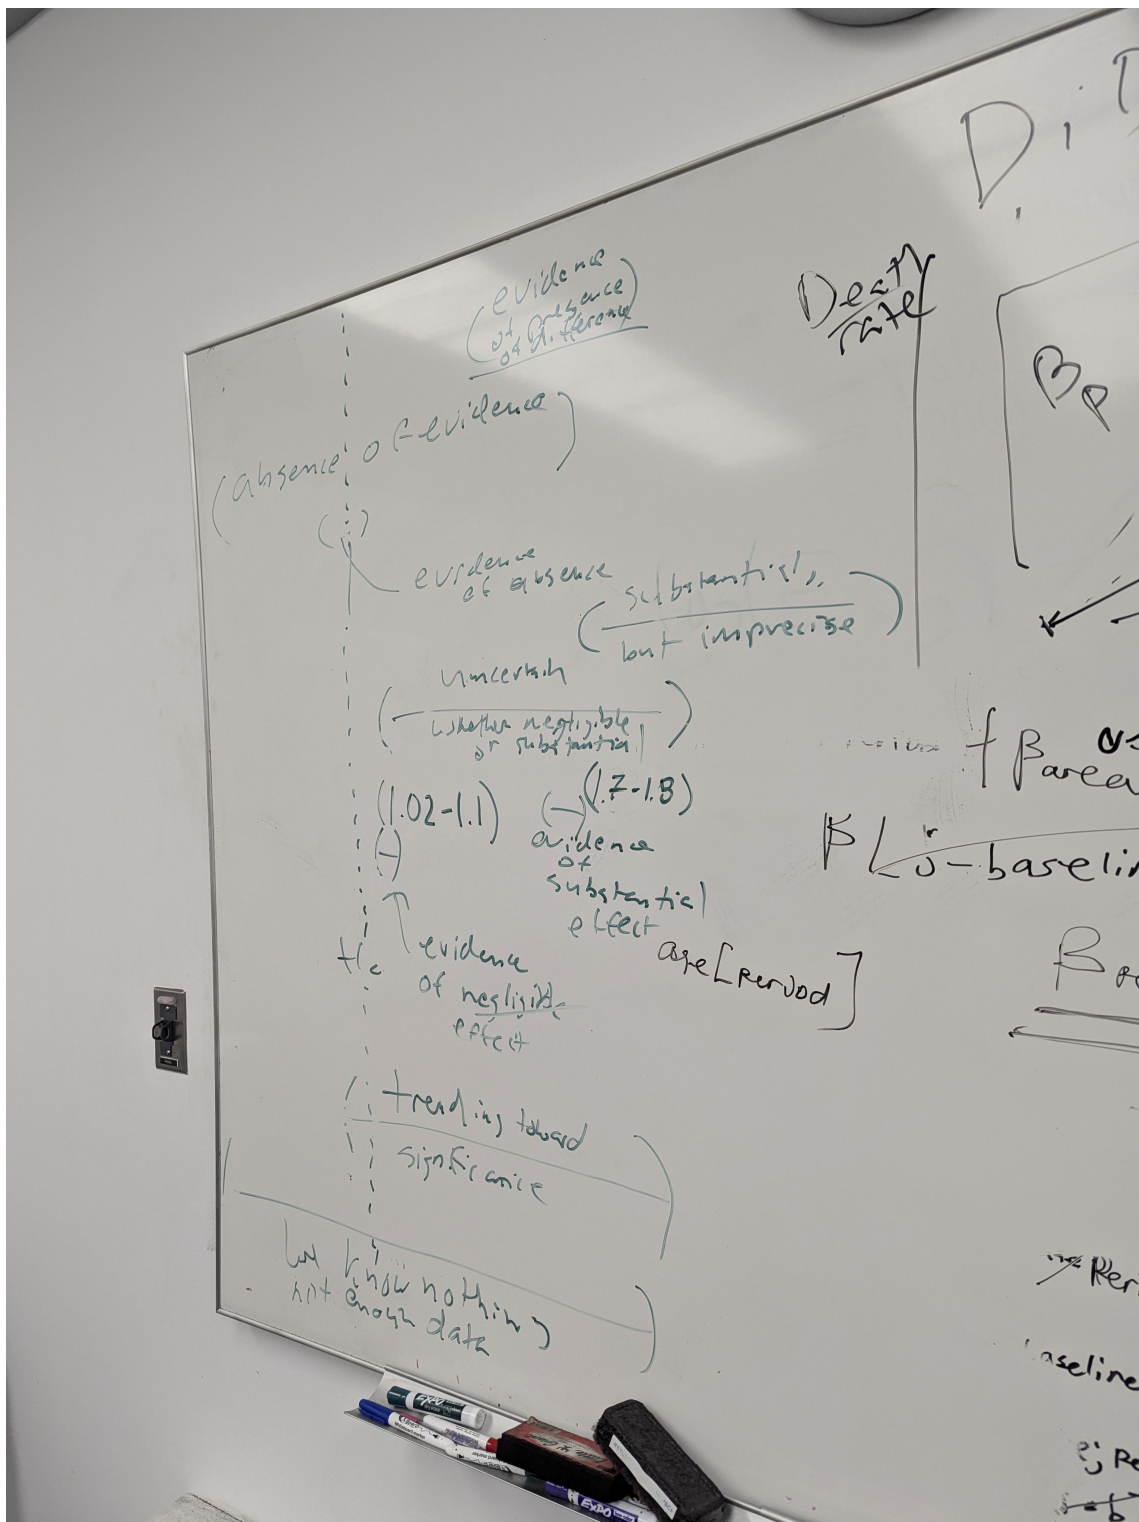 evidence
of presence
of difference
(absence of evidence)
( )
evidence
of absence
(substantial,
but imprecise)
(uncertain
whether negligible
or substantial)
(1.02-1.1)
(1.7-1.8)
(-)
(-)
evidence
of
substantial
effect
evidence
of negligible
effect
trending toward
significance
know nothing
not enough data
Death
rate
D
βp
+ βarea
-baselin
age[period]
β
Peri
baseline
EXPO
EXPO